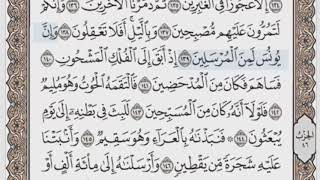 إِلَّا عَجُوزًا فِى الْغَٰبِرِينَ ١٣٥ ثُمَّ دَمَّرْنَا الْآخَرِينَ ١٣٦ وَإِنَّكُمْ
لَتَمُرُّونَ عَلَيْهِم مُّصْبِحِينَ ١٣٧ وَبِالَّيْلِ أَفَلَا تَعْقِلُونَ ١٣٨ وَإِنَّ
يُونُسَ لَمِنَ الْمُرْسَلِينَ ١٣٩ إِذْ أَبَقَ إِلَى الْفُلْكِ الْمَشْحُونِ ١٤٠
فَسَاهَمَ فَكَانَ مِنَ الْمُدْحَضِينَ ١٤١ فَالْتَقَمَهُ الْحُوتُ وَهُوَ مُلِيمٌ
١٤٢ فَلَوْلَا أَنَّهُ كَانَ مِنَ الْمُسَبِّحِينَ ١٤٣ لَلَبِثَ فِى بَطْنِهِ إِلَىٰ يَوْمِ
يُبْعَثُونَ ١٤٤ فَنَبَذْنَٰهُ بِالْعَرَاءِ وَهُوَ سَقِيمٌ ١٤٥ وَأَنبَتْنَا
عَلَيْهِ شَجَرَةً مِّن يَقْطِينٍ ١٤٦ وَأَرْسَلْنَٰهُ إِلَىٰ مِائَةِ أَلْفٍ أَوْ
الحزب
٤٦